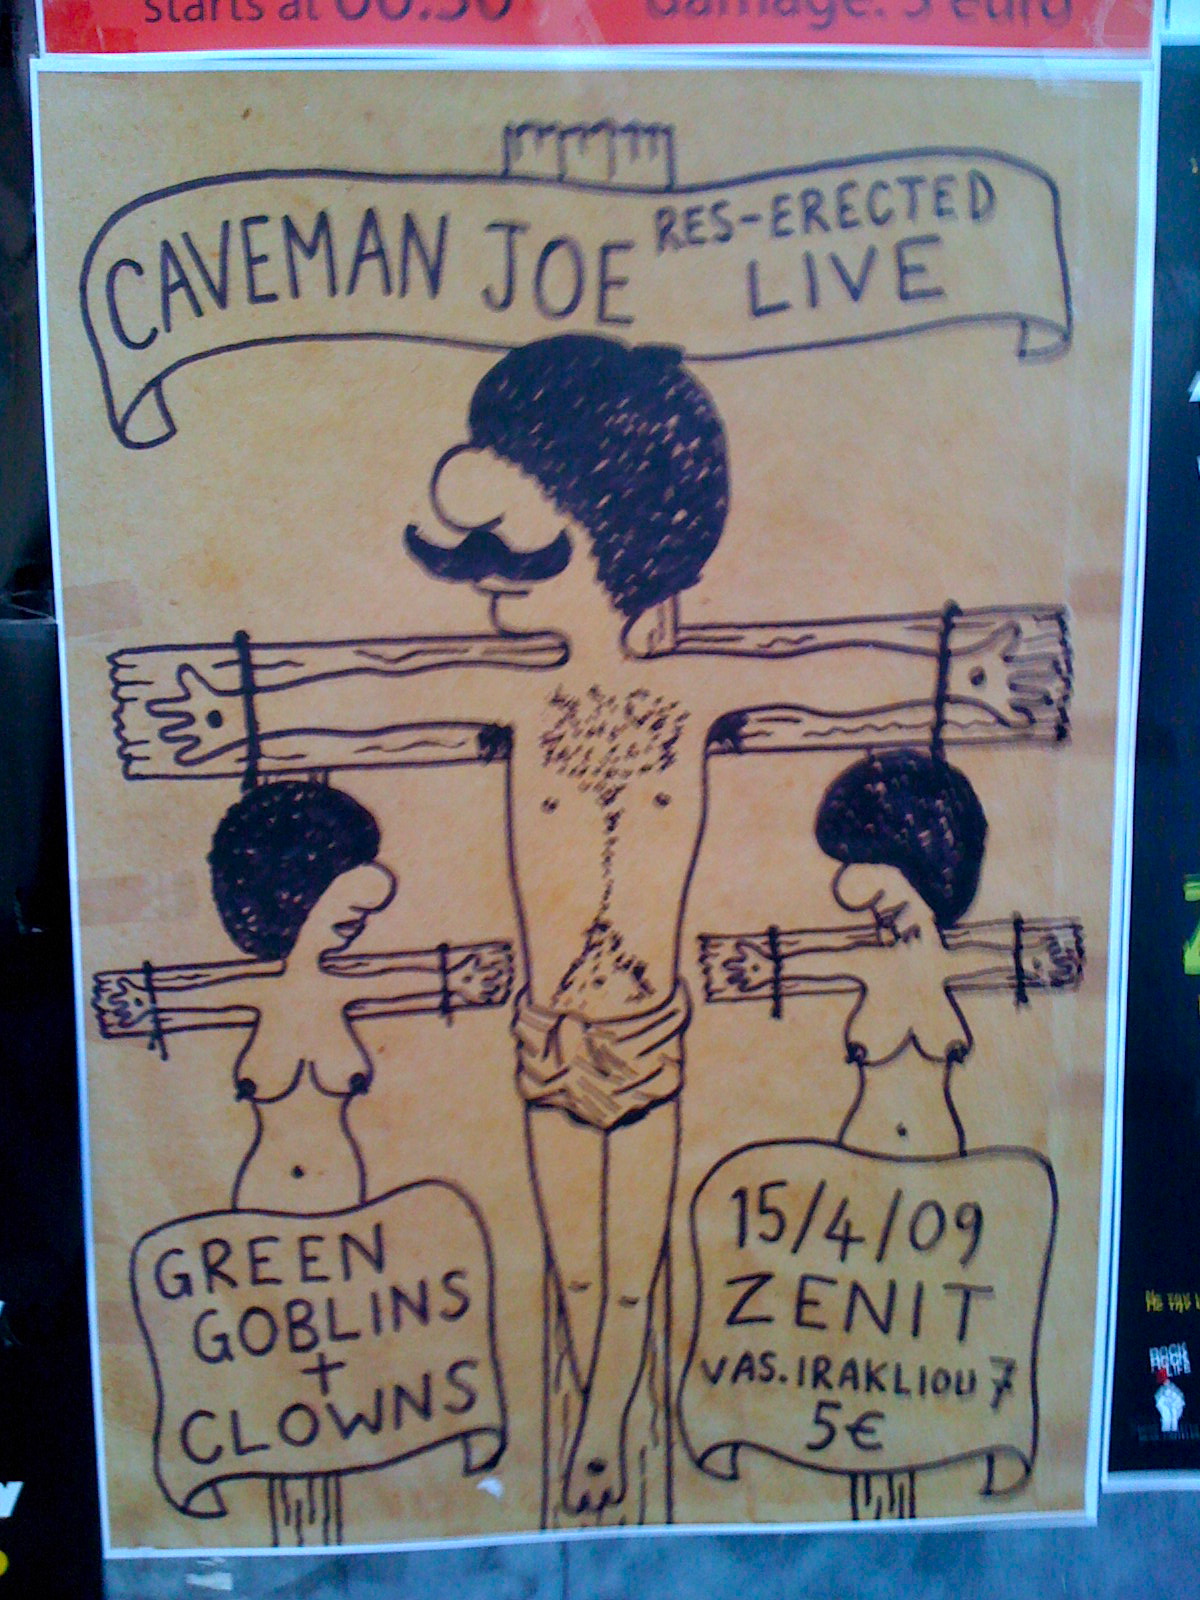 starts at 00:30
damage: 5 euro
CAVEMAN JOE RES-ERECTED
LIVE
GREEN
GOBLINS
+
CLOWNS
15/4/09
ZENIT
VAS. IRAKLIOU 7
5€